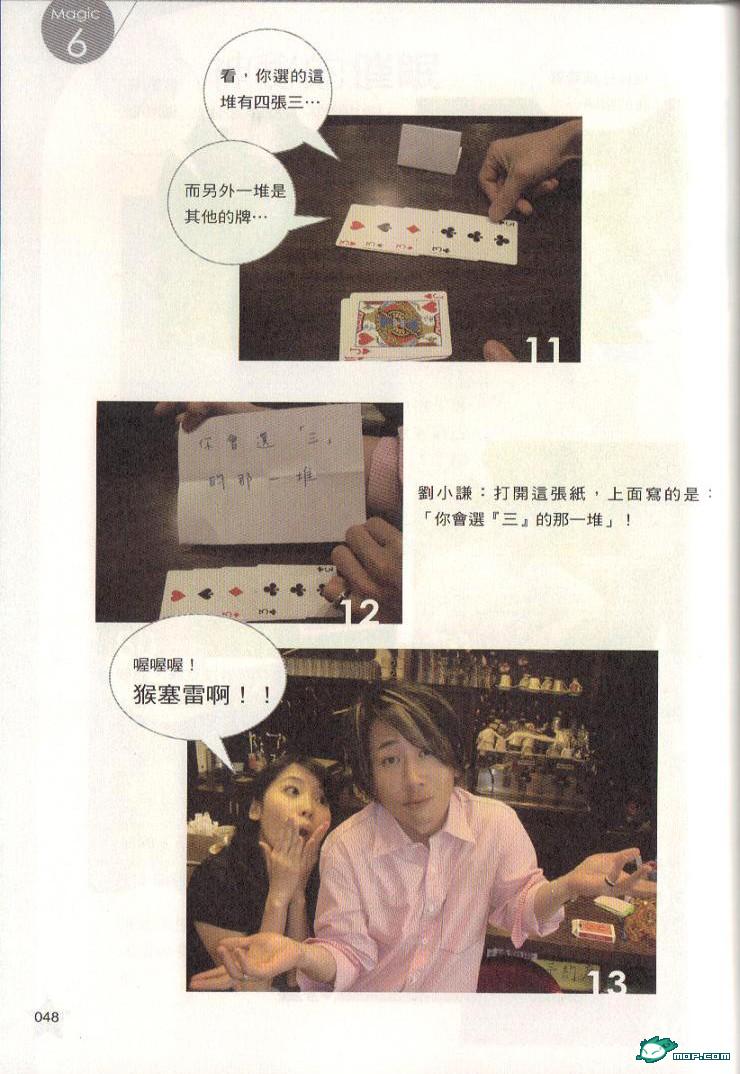 Magic
6
看，你選的這
堆有四張三…
而另外一堆是
其他的牌…
11
你會選「三」
的那一堆
12
劉小謙：打開這張紙，上面寫的是：
「你會選『三』的那一堆」！
喔喔喔！
猴塞雷啊！！
13
048
MOP.COM